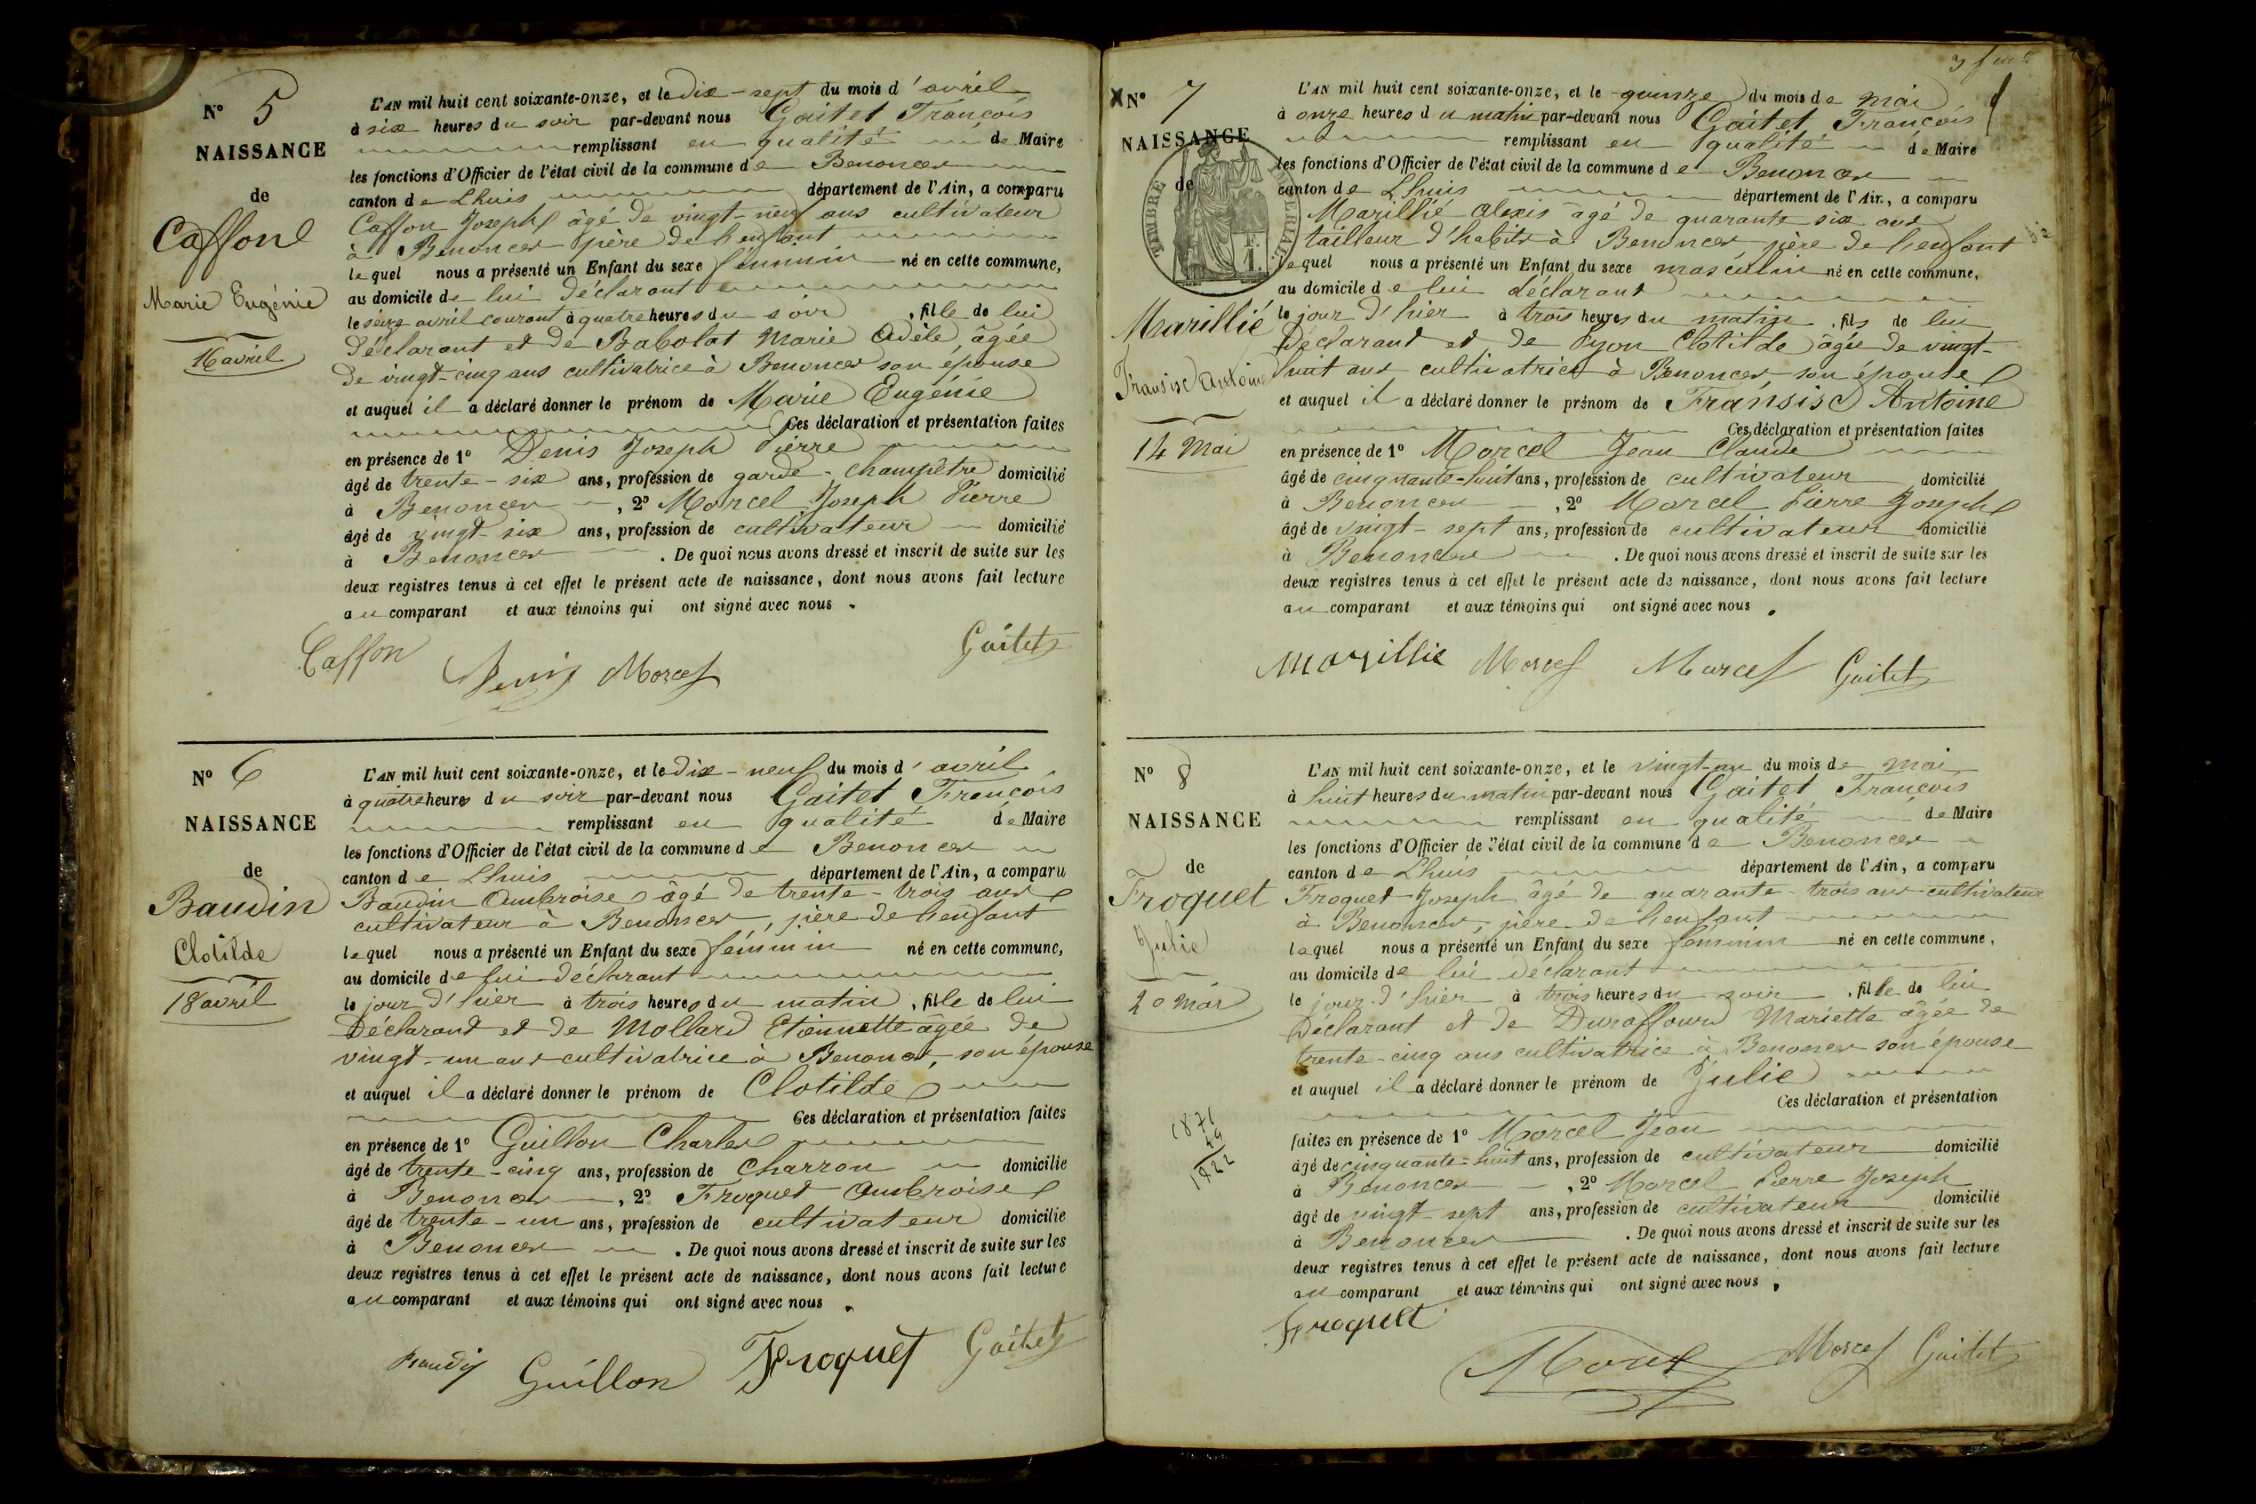 N° 5
NAISSANCE
de
Caffon
Marie Eugénie
16 avril
L'AN mil huit cent soixante-onze, et le dix-sept du mois d'avril
à six heures du soir par-devant nous Gaitet François
remplissant en qualité de Maire
les fonctions d'Officier de l'état civil de la commune de Benonces
canton de Lhuis département de l'Ain, a comparu
Caffon Joseph âgé de vingt-neuf ans cultivateur
à Benonces père de l'enfant
lequel nous a présenté un Enfant du sexe féminin né en cette commune,
au domicile de lui déclarant
le seize avril courant à quatre heures du soir, fille de lui
Déclarant et de Babolat Marie Adèle, âgée
de vingt-cinq ans cultivatrice à Benonces son épouse
et auquel il a déclaré donner le prénom de Marie Eugénie
Ces déclaration et présentation faites
en présence de 1° Denis Joseph Pierre
âgé de trente-six ans, profession de garde-champêtre domicilié
à Benonces, 2° Morcel Joseph Pierre
âgé de vingt-six ans, profession de cultivateur domicilié
à Benonces. De quoi nous avons dressé et inscrit de suite sur les
deux registres tenus à cet effet le présent acte de naissance, dont nous avons fait lecture
au comparant et aux témoins qui ont signé avec nous.
Caffon Denis Morcel Gaitet
N° 6
NAISSANCE
de
Baudin
Clotilde
18 avril
L'AN mil huit cent soixante-onze, et le dix-neuf du mois d'avril
à quatre heures du soir par-devant nous Gaitet François
remplissant en qualité de Maire
les fonctions d'Officier de l'état civil de la commune de Benonces
canton de Lhuis département de l'Ain, a comparu
Baudin Ambroise âgé de trente-trois ans
cultivateur à Benonces, père de l'enfant
lequel nous a présenté un Enfant du sexe féminin né en cette commune,
au domicile de lui déclarant
le jour d'hier à trois heures du matin, fille de lui
Déclarant et de Mollard Etiennette âgée de
vingt-un ans cultivatrice à Benonces, son épouse
et auquel il a déclaré donner le prénom de Clotilde
Ces déclaration et présentation faites
en présence de 1° Guillon Charles
âgé de trente-cinq ans, profession de Charron domicilié
à Benonces, 2° Froquet Ambroise
âgé de trente-un ans, profession de cultivateur domicilié
à Benonces. De quoi nous avons dressé et inscrit de suite sur les
deux registres tenus à cet effet le présent acte de naissance, dont nous avons fait lecture
au comparant et aux témoins qui ont signé avec nous.
Baudin Guillon Froquet Gaitet
X N° 7
NAISSANCE
de
TIMBRE IMPERIAL
Marillié
Fransisc Antoine
14 Mai
L'AN mil huit cent soixante-onze, et le quinze du mois de mai
à onze heures du matin par-devant nous Gaitet François
remplissant en qualité de Maire
les fonctions d'Officier de l'état civil de la commune de Benonces
canton de Lhuis département de l'Ain, a comparu
Marillié Alexis âgé de quarante six ans
tailleur d'habits à Benonces père de l'enfant
lequel nous a présenté un Enfant du sexe masculin né en cette commune,
au domicile de lui déclarant
le jour d'hier à trois heures du matin, fils de lui
Déclarant et de Pyon Clotilde âgée de vingt-
huit ans cultivatrice à Benonces son épouse
et auquel il a déclaré donner le prénom de Fransisc Antoine
Ces déclaration et présentation faites
en présence de 1° Morcel Jean Claude
âgé de cinquante-huit ans, profession de cultivateur domicilié
à Benonces, 2° Morcel Pierre Joseph
âgé de vingt-sept ans, profession de cultivateur domicilié
à Benonces. De quoi nous avons dressé et inscrit de suite sur les
deux registres tenus à cet effet le présent acte de naissance, dont nous avons fait lecture
au comparant et aux témoins qui ont signé avec nous.
Marillie Morcel Morcel Gaitet
N° 8
NAISSANCE
de
Froquet
Julie
20 mai
1871
49
1822
L'AN mil huit cent soixante-onze, et le vingt-un du mois de mai
à huit heures du matin par-devant nous Gaitet François
remplissant en qualité de Maire
les fonctions d'Officier de l'état civil de la commune de Benonces
canton de Lhuis département de l'Ain, a comparu
Froquet Joseph âgé de quarante-trois ans cultivateur
à Benonces, père de l'enfant
lequel nous a présenté un Enfant du sexe féminin né en cette commune,
au domicile de lui déclarant
le jour d'hier à trois heures du soir, fille de lui
Déclarant et de Duraffourd Mariette âgée de
trente-cinq ans cultivatrice à Benonces son épouse
et auquel il a déclaré donner le prénom de Julie
Ces déclaration et présentation
faites en présence de 1° Morcel Jean
âgé de cinquante-huit ans, profession de cultivateur domicilié
à Benonces, 2° Morcel Pierre Joseph
âgé de vingt-sept ans, profession de cultivateur domicilié
à Benonces. De quoi nous avons dressé et inscrit de suite sur les
deux registres tenus à cet effet le présent acte de naissance, dont nous avons fait lecture
au comparant et aux témoins qui ont signé avec nous.
Froquet
Morcel Morcel Gaitet